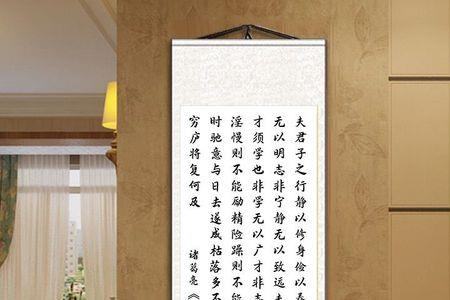 夫君子之行静以修身俭以养
无以明志非宁静无以致远夫
才须学也非学无以广才非志
淫慢则不能励精险躁则不能
时驰意与日去遂成枯落多不
穷庐将复何及 诸葛亮《